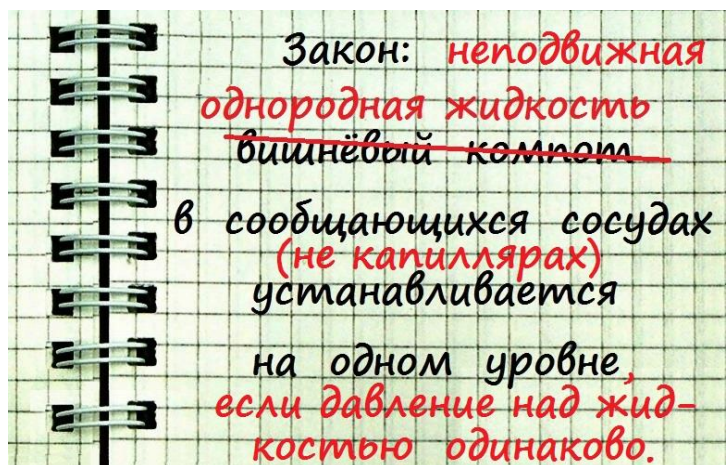 Закон: неподвижная
однородная жидкость
вишнёвый компот
в сообщающихся сосудах
(не капиллярах)
устанавливается
на одном уровне,
если давление над жид-
костью одинаково.